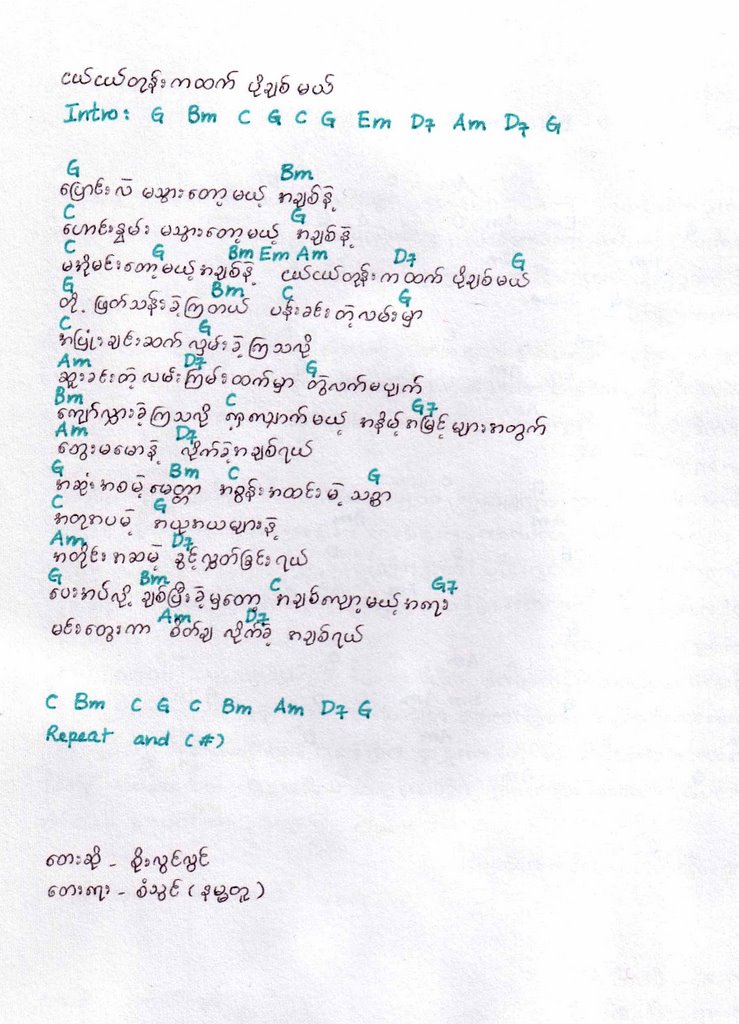 ငယ်ငယ်တုန်းကထက် ပိုချစ်မယ်
Intro: G Bm C G C G Em D7 Am D7 G
G Bm
ပြောင်းလဲ မသွားတော့မယ့် အချစ်နဲ့
C G
ဟောင်းနွမ်း မသွားတော့မယ့် အချစ်နဲ့
C G Bm Em Am D7 G
မအိုမင်းတော့မယ့်အချစ်နဲ့ ငယ်ငယ်တုန်းကထက် ပိုချစ်မယ်
G Bm C G
တို့ ဖြတ်သန်းခဲ့ကြတယ် ပန်းခင်းတဲ့လမ်းမှာ
C G
အပြုံးချင်းဆက် လှမ်းခဲ့ကြသလို
Am D7 G
ဆူးခင်းတဲ့လမ်းကြမ်းထက်မှာ တွဲလက်မပျက်
Bm C G7
ကျော်လွှားခဲ့ကြသလို လှေလျှောက်မယ့် အနိမ့်အမြင့်များအတွက်
Am D7
တွေးမမောနဲ့ လိုက်ခဲ့အချစ်ရယ်
G Bm C G
အဆုံးအစမဲ့မေတ္တာ အစွန်းအထင်းမဲ့သစ္စာ
C G
အတုအပမဲ့ အယူအယများနဲ့
Am D7
အတိုင်းအဆမဲ့ ခွင့်လွှတ်ခြင်းရယ်
G Bm C G7
ပေးအပ်လို့ ချစ်ပြီးခဲ့မှတော့ အချစ်လျော့မယ့်အရေး
Am D7
မင်းတွေးကာ စိတ်ချ လိုက်ခဲ့ အချစ်ရယ်
C Bm C G C Bm Am D7 G
Repeat and (#)
တေးဆို - စိုးလွင်လွင်
တေးရေး - စံသွင် (နမ္မတူ)